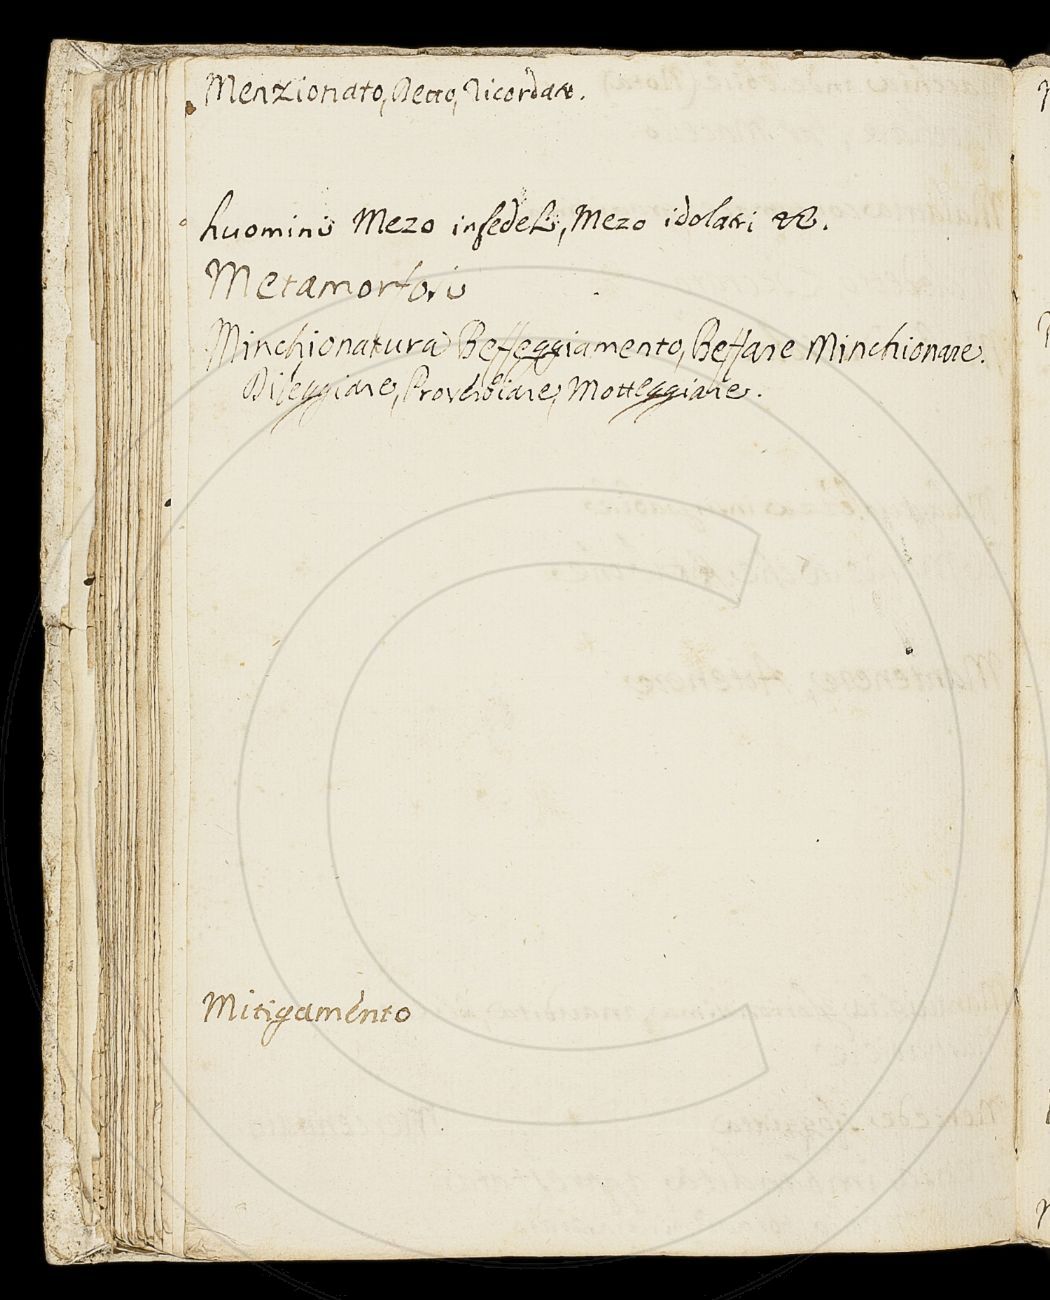 Menzionato, Detto, Ricordato.
huomini Mezo infedeli, Mezo idolatri &c.
Metamorfosi
Minchionatura Beffeggiamento, Beffare Minchionare.
Dileggiare, Proverbiare, Motteggiare.
Mitigamento